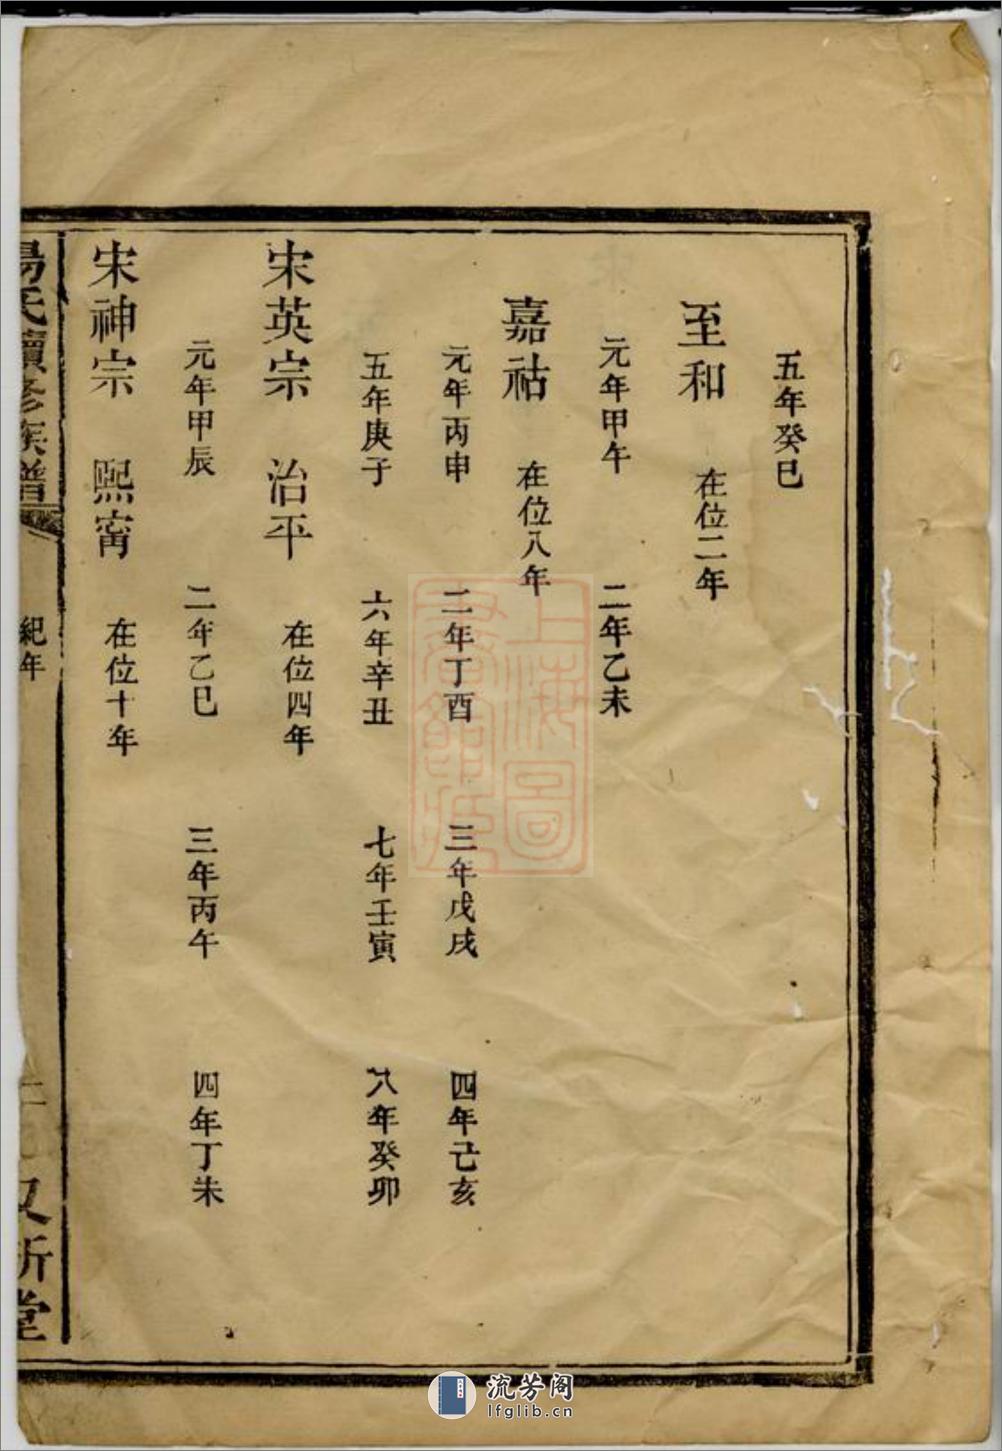 五年癸巳
至和 在位二年
元年甲午 二年乙未
嘉祐 在位八年
元年丙申 二年丁酉 三年戊戌 四年己亥
五年庚子 六年辛丑 七年壬寅 八年癸卯
宋英宗 治平 在位四年
元年甲辰 二年乙巳 三年丙午 四年丁未
宋神宗 熙甯 在位十年
氏續修族譜 紀年 又新堂
上海圖書館藏
流芳阁
lfglib.cn